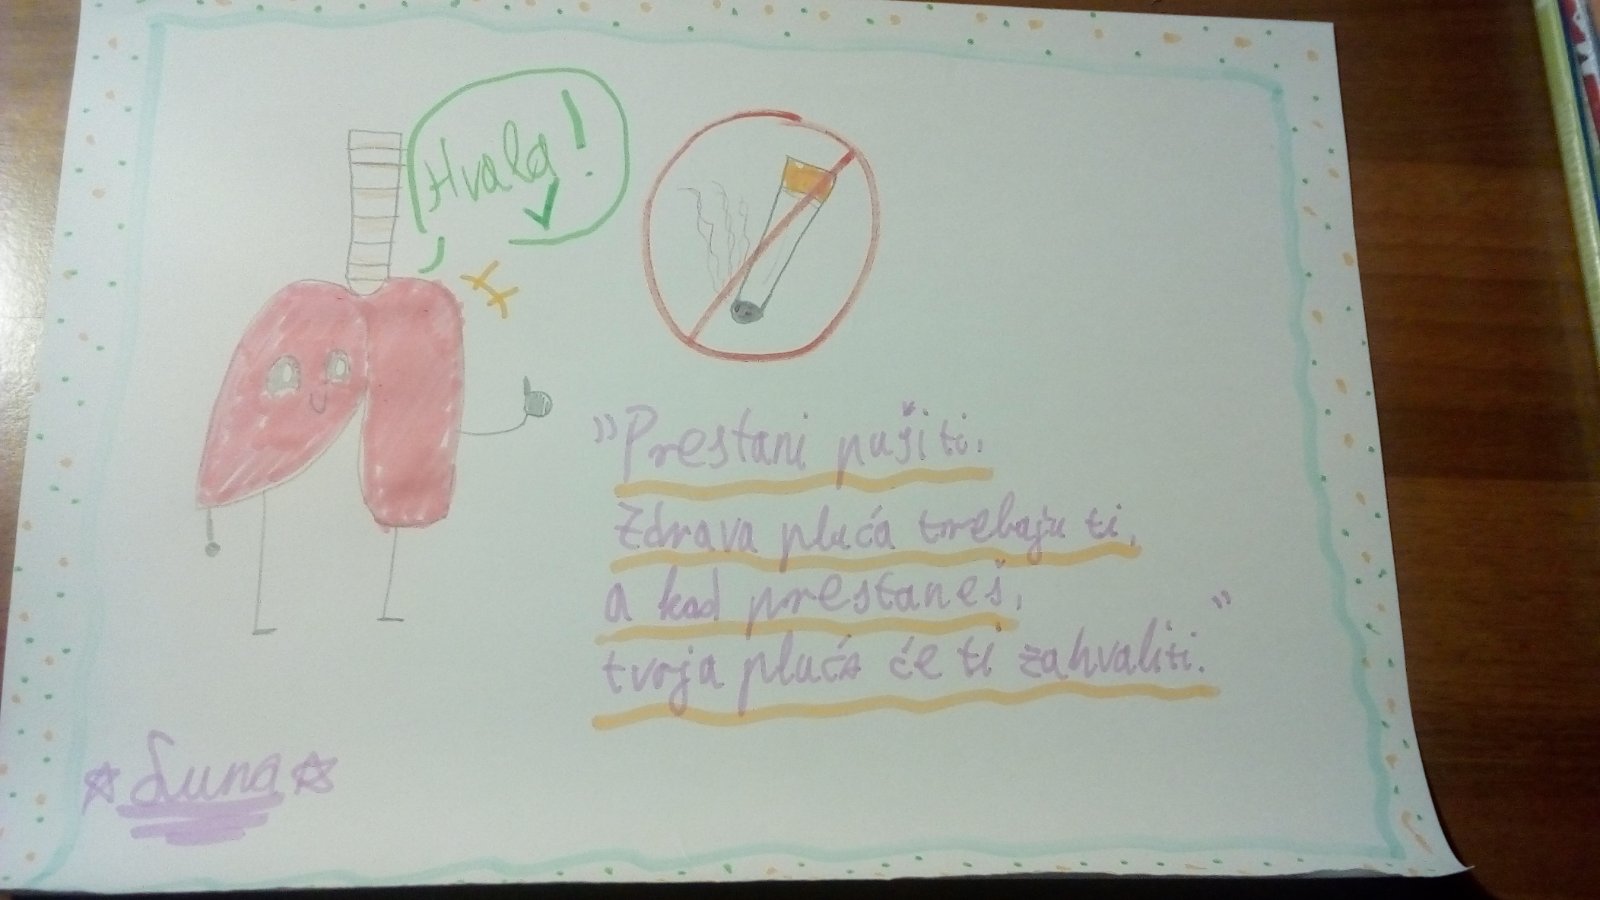 Hvala!
"Prestani pušiti.
Zdrava pluća trebaju ti,
a kad prestaneš,
tvoja pluća će ti zahvaliti."
Luna